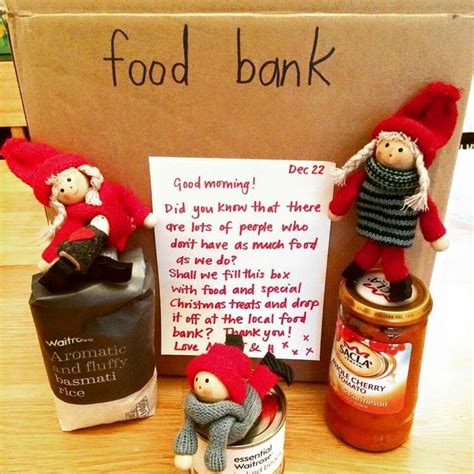 food bank
Dec 22
Good morning!
Did you know that there
are lots of people who
don't have as much food
as we do?
Shall we fill this box
with food and special
Christmas treats and drop
it off at the local food
bank? Thank you!
Love & H x x x
Waitrose
Aromatic
and fluffy
basmati
rice
SACLA
WHOLE CHERRY
TOMATO
& Parmesan
essential
Waitrose